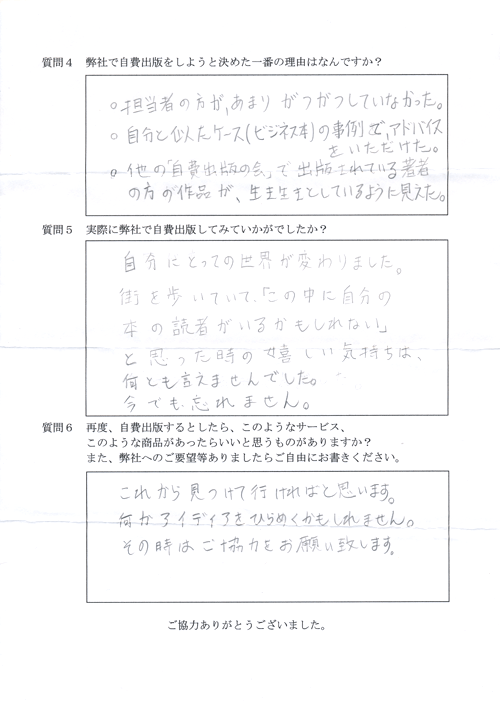 質問4 弊社で自費出版をしようと決めた一番の理由はなんですか?
○担当者の方が、あまりがつがつしていなかった。
○自分と似たケース(ビジネス本)の事例で、アドバイス
をいただけた。
○他の「自費出版の会」で出版されている著者
の方の作品が、生き生きとしているように見えた。
質問5 実際に弊社で自費出版してみていかがでしたか?
自分にとっての世界が変わりました。
街を歩いていて、「この中に自分の
本の読者がいるかもしれない」
と思った時の嬉しい気持ちは、
何とも言えませんでした。
今でも忘れません。
質問6 再度、自費出版するとしたら、このようなサービス、
このような商品があったらいいと思うものがありますか?
また、弊社へのご要望等ありましたらご自由にお書きください。
これから見つけて行ければと思います。
何かアイディアをひらめくかもしれません。
その時はご協力をお願い致します。
ご協力ありがとうございました。